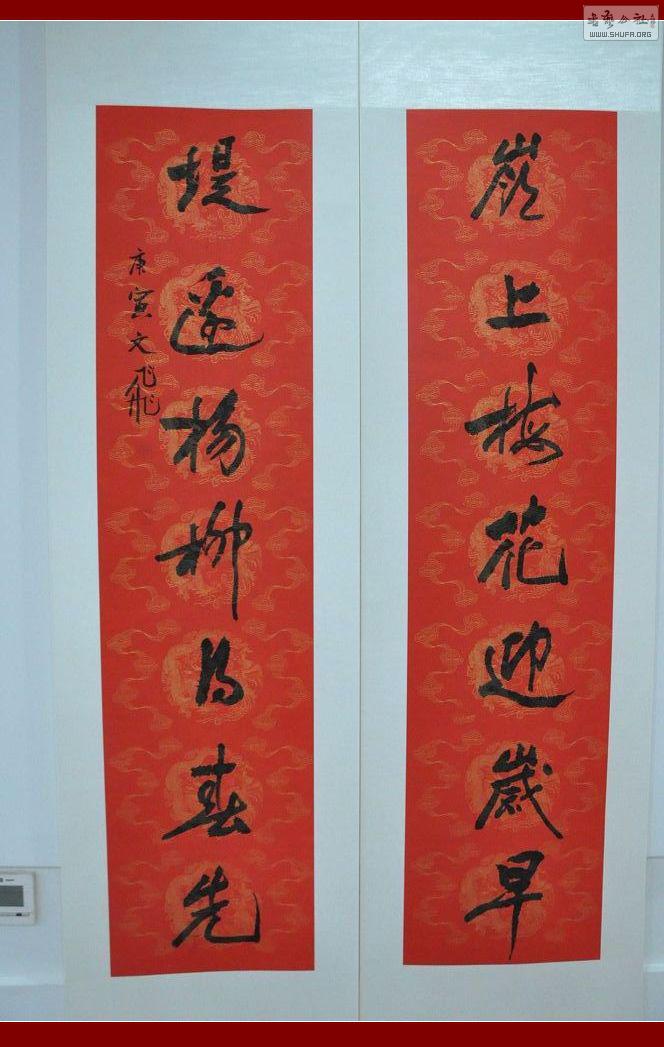 嶺上梅花迎歲早
堤邊楊柳得春先
庚寅文飛
WWW.SHUFA.ORG